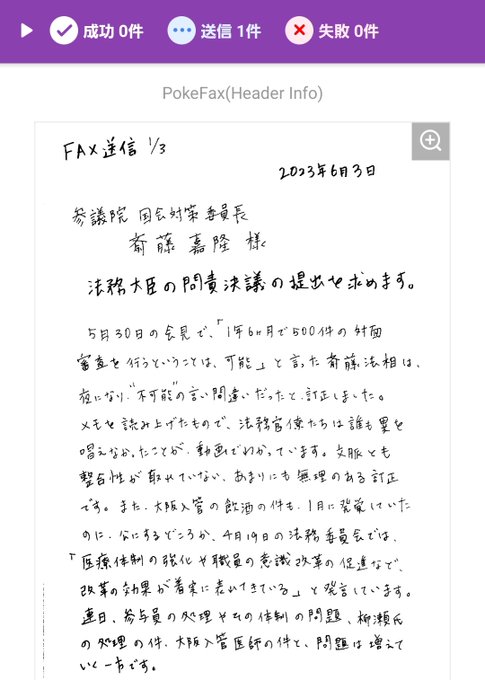 成功 0件 送信 1件 失敗 0件
PokeFax(Header Info)
FAX送信 1/3
2023年6月3日
参議院 国会対策委員長
斎藤嘉隆様
法務大臣の問責決議の提出を求めます。
5月30日の会見で、「1年6ヶ月で500件の対面
審査を行うということは、可能」と言った斎藤法相は、
夜になり"不可能"の言い間違いだったと、訂正しました。
メモを読み上げたもので、法務官僚たちは誰も異を
唱えなかったことが、動画でわかっています。文脈とも
整合性が取れていない、あまりにも無理のある訂正
です。また、大阪入管の飲酒の件も、1月に発覚していた
のに、公にするどころか、4月19日の法務委員会では、
「医療体制の強化や職員の意識改革の促進など、
改革の効果が着実に表れてきている」と発言しています。
連日、参与員の処理やその体制の問題、柳瀬氏
の処理の件、大阪入管医師の件と、問題は増えて
いく一方です。